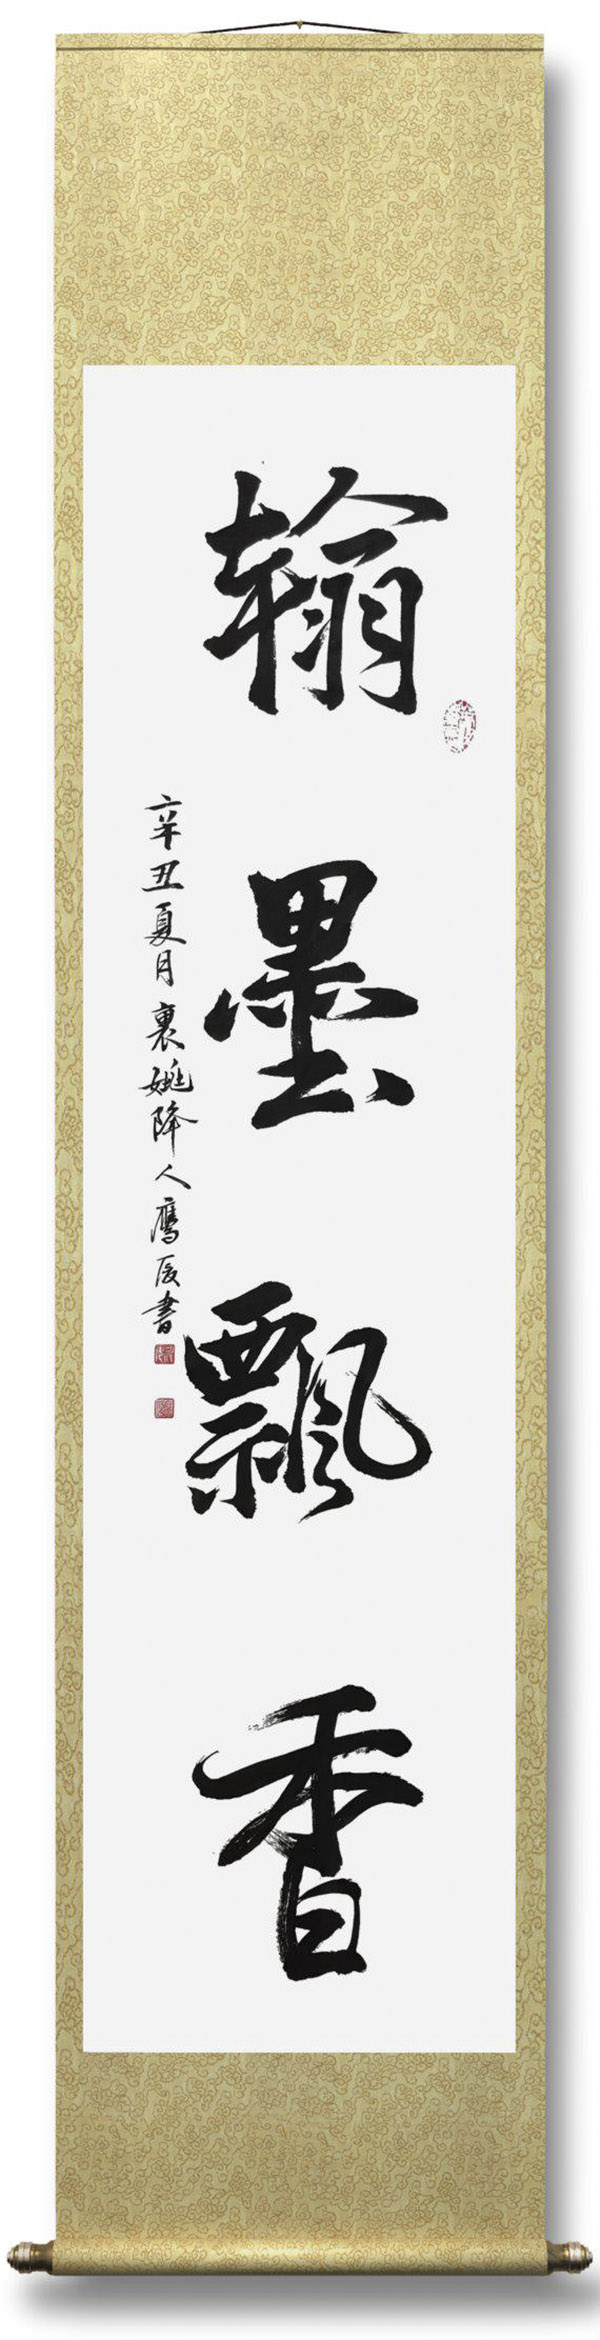 翰墨飘香
辛丑夏月裏姚降人鹰辰書